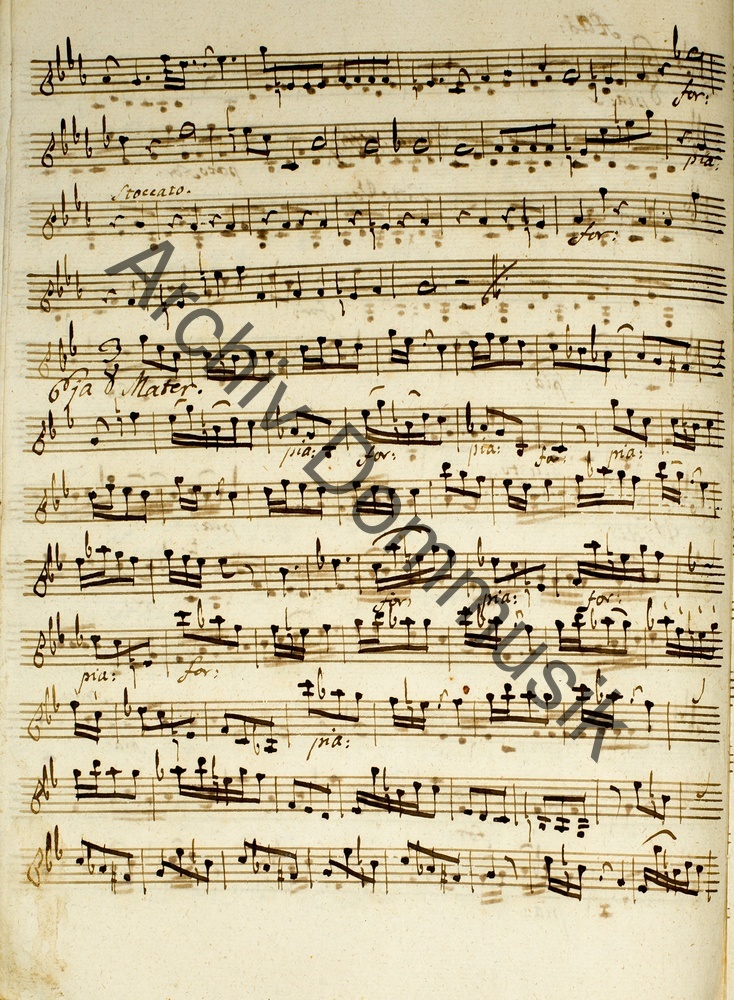 for:
pia:
Stoccato.
for:
3
8
Eja Mater.
pia: for: pia: for: pia:
for: pia: for:
pia: for:
pia:
Archiv Dommusik